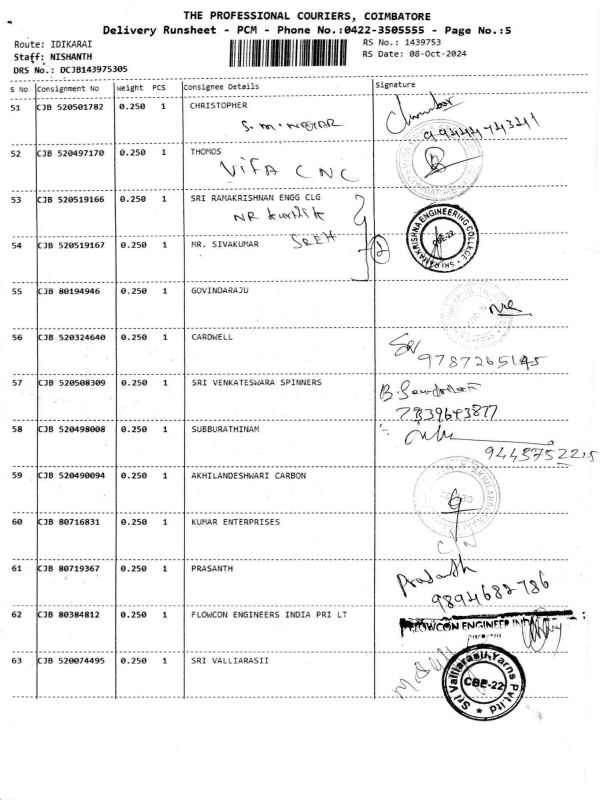 THE PROFESSIONAL COURIERS, COIMBATORE
Delivery Runsheet - PCM - Phone No.:0422-3505555 - Page No.:5
Route: IDIKARAI
RS No.: 1439753
Staff: NISHANTH
RS Date: 08-Oct-2024
DRS No.: DCJB143975305
S No Consignment No Weight PCS Consignee Details Signature
51 CJB 520501782 0.250 1 CHRISTOPHER
S.M.NAGAR
99444743411
52 CJB 520497170 0.250 1 THOMOS
Vifa CNC
53 CJB 520519166 0.250 1 SRI RAMAKRISHNAN ENGG CLG
NR
SRI RAMAKRISHNA ENGINEERING COLLEGE
CBE-22
54 CJB 520519167 0.250 1 MR. SIVAKUMAR
SREH
2
55 CJB 80194946 0.250 1 GOVINDARAJU
56 CJB 520324640 0.250 1 CARDWELL
57 CJB 520508309 0.250 1 SRI VENKATESWARA SPINNERS
7339643877
58 CJB 520498008 0.250 1 SUBBURATHINAM
9443752215
59 CJB 520490094 0.250 1 AKHILANDESHWARI CARBON
60 CJB 80716831 0.250 1 KUMAR ENTERPRISES
61 CJB 80719367 0.250 1 PRASANTH
Prasanth
9894682786
62 CJB 80384812 0.250 1 FLOWCON ENGINEERS INDIA PRI LT
FLOWCON ENGINEER
63 CJB 520074495 0.250 1 SRI VALLIARASII
Sri Valliarasii Yarns Pvt Ltd
CBE-22